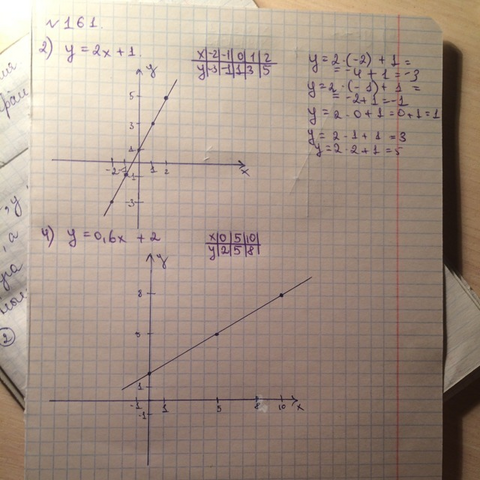 № 161
2) y = 2x + 1
x | -2 | -1 | 0 | 1 | 2
y | -3 | -1 | 1 | 3 | 5
y = 2 · (-2) + 1 =
= -4 + 1 = -3
y = 2 · (-1) + 1 =
= -2 + 1 = -1
y = 2 · 0 + 1 = 0 + 1 = 1
y = 2 · 1 + 1 = 3
y = 2 · 2 + 1 = 5
y
5
3
1
-2 -1 1 2 x
-1
-3
4) y = 0,6x + 2
x | 0 | 5 | 10
y | 2 | 5 | 8
y
8
5
1
-1 1 5 8 10 x
-1
2